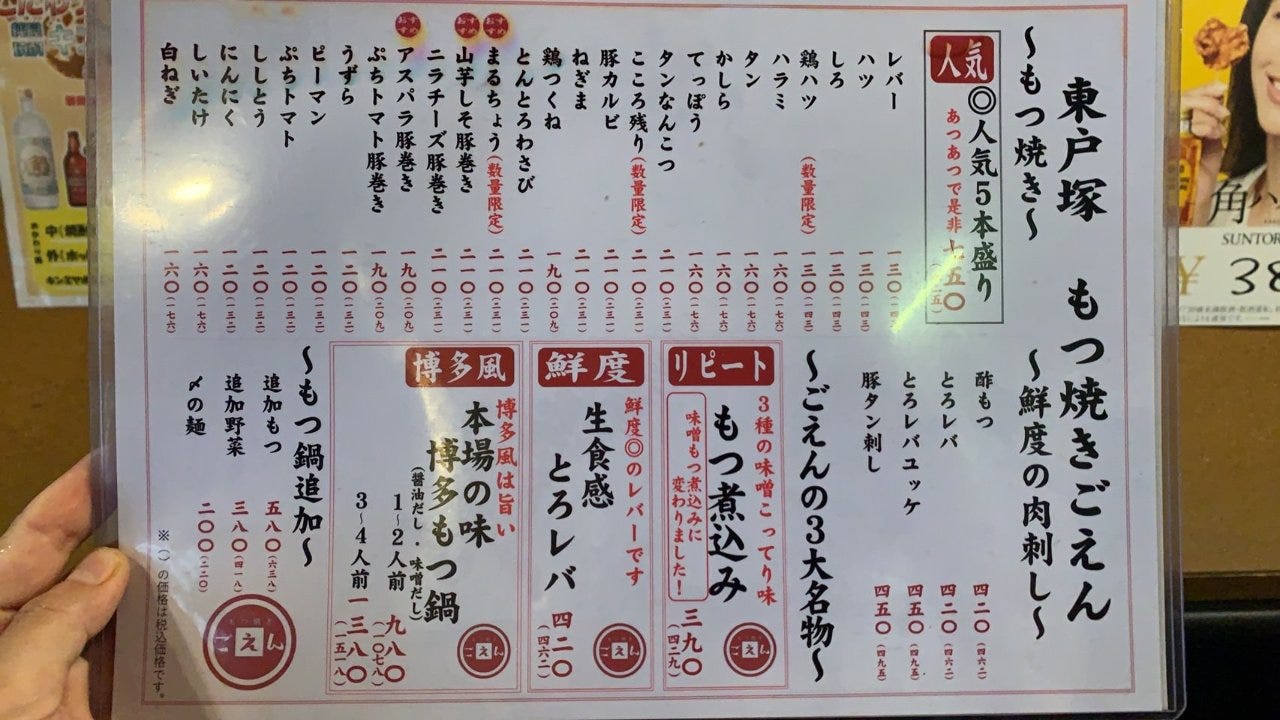 東戸塚 もつ焼きごえん
～もつ焼き～
人気
◎人気5本盛り
あつあつで是非
七五〇
レバー 一三〇(一四三)
ハツ 一三〇(一四三)
しろ 一三〇(一四三)
鶏ハツ(数量限定) 一三〇(一四三)
ハラミ 一六〇(一七六)
タン 一六〇(一七六)
かしら 一六〇(一七六)
てっぽう 一六〇(一七六)
タンなんこつ 二一〇(二三一)
こころ残り(数量限定) 二一〇(二三一)
豚カルビ 二一〇(二三一)
ねぎま 二一〇(二三一)
鶏つくね 一九〇(二〇九)
とんとろわさび 二一〇(二三一)
おすすめ
まるちょう(数量限定) 二一〇(二三一)
おすすめ
山芋しそ豚巻き 二一〇(二三一)
ニラチーズ豚巻き 二一〇(二三一)
おすすめ
アスパラ豚巻き 一九〇(二〇九)
ぷちトマト豚巻き 一九〇(二〇九)
うずら 一二〇(一三二)
ピーマン 一二〇(一三二)
ぷちトマト 一二〇(一三二)
ししとう 一二〇(一三二)
にんにく 一二〇(一三二)
しいたけ 一六〇(一七六)
白ねぎ 一六〇(一七六)
～鮮度の肉刺し～
酢もつ 四二〇(四六二)
とろレバ 四二〇(四六二)
とろレバユッケ 四五〇(四九五)
豚タン刺し 四五〇(四九五)
～ごえんの3大名物～
リピート
3種の味噌こってり味
もつ煮込み
味噌もつ煮込みに
変わりました！
三九〇(四二九)
ごえん
鮮度
鮮度◎のレバーです
生食感
とろレバ
四二〇(四六二)
ごえん
博多風
博多風は旨い
本場の味
博多もつ鍋
(醤油だし・味噌だし)
1～2人前 九八〇(一〇七八)
3～4人前 一三八〇(一五一八)
ごえん
～もつ鍋追加～
追加もつ 五八〇(六三八)
追加野菜 三八〇(四一八)
〆の麺 二〇〇(二二〇)
もつ焼き
ごえん
※()の価格は税込価格です。
角ハ
SUNTOR
¥38